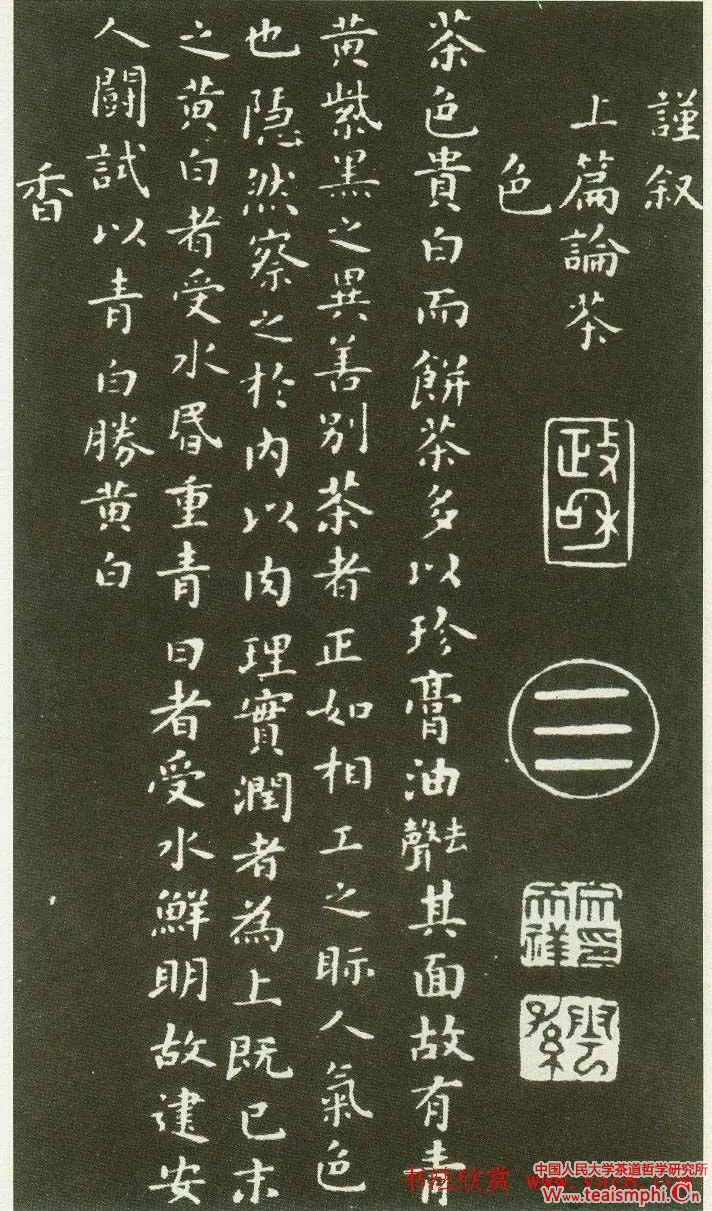 謹叙
上篇論茶
政和
色
茶色貴白而餅茶多以珍膏油去聲其面故有青
黄紫黑之異善别茶者正如相工之眎人氣色
也隠然察之於内以肉理實潤者為上既已末
之黄白者受水昬重青白者受水鮮明故建安
人鬭試以青白勝黄白
香
中国人民大学茶道哲学研究所
书法欣赏
Www.teaismphi.Cn